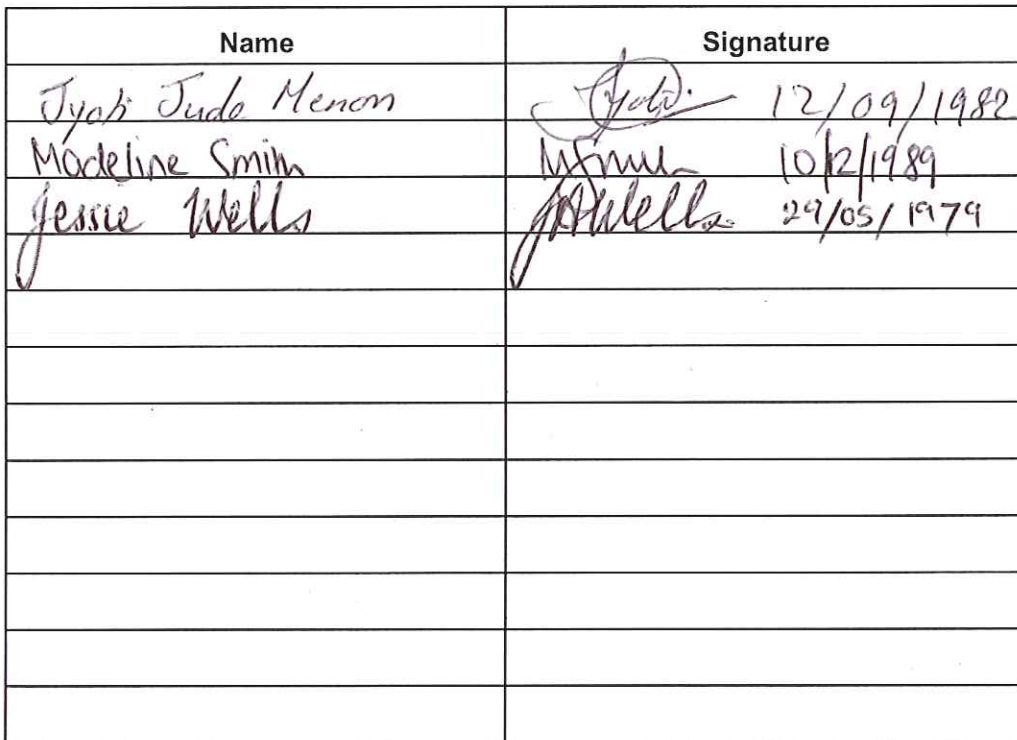 Name Signature
Jyoti Jude Menon Jyoti. 12/09/1982
Madeline Smith 10/2/1989
Jessie Wells JAWells 29/05/1979